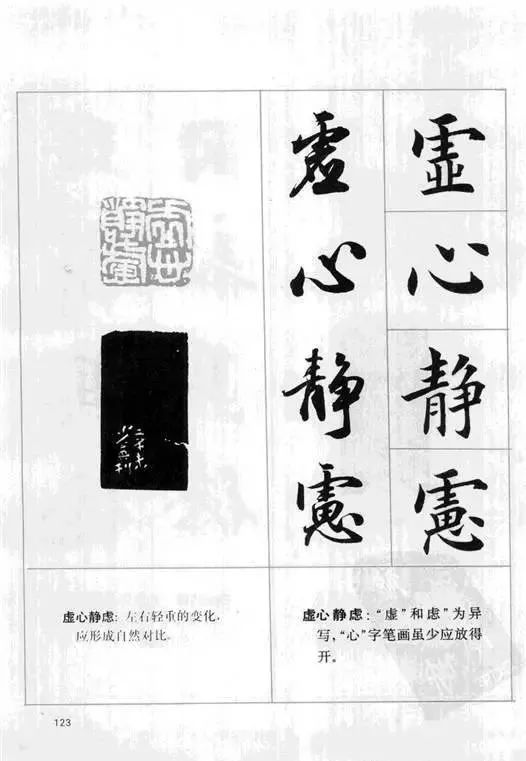 虚心静慮
虚心静慮
虚心静虑：左右轻重的变化，
应形成自然对比。
虚心静虑：“虚”和虑”为异
写，“心”字笔画虽少应放得
开。
123